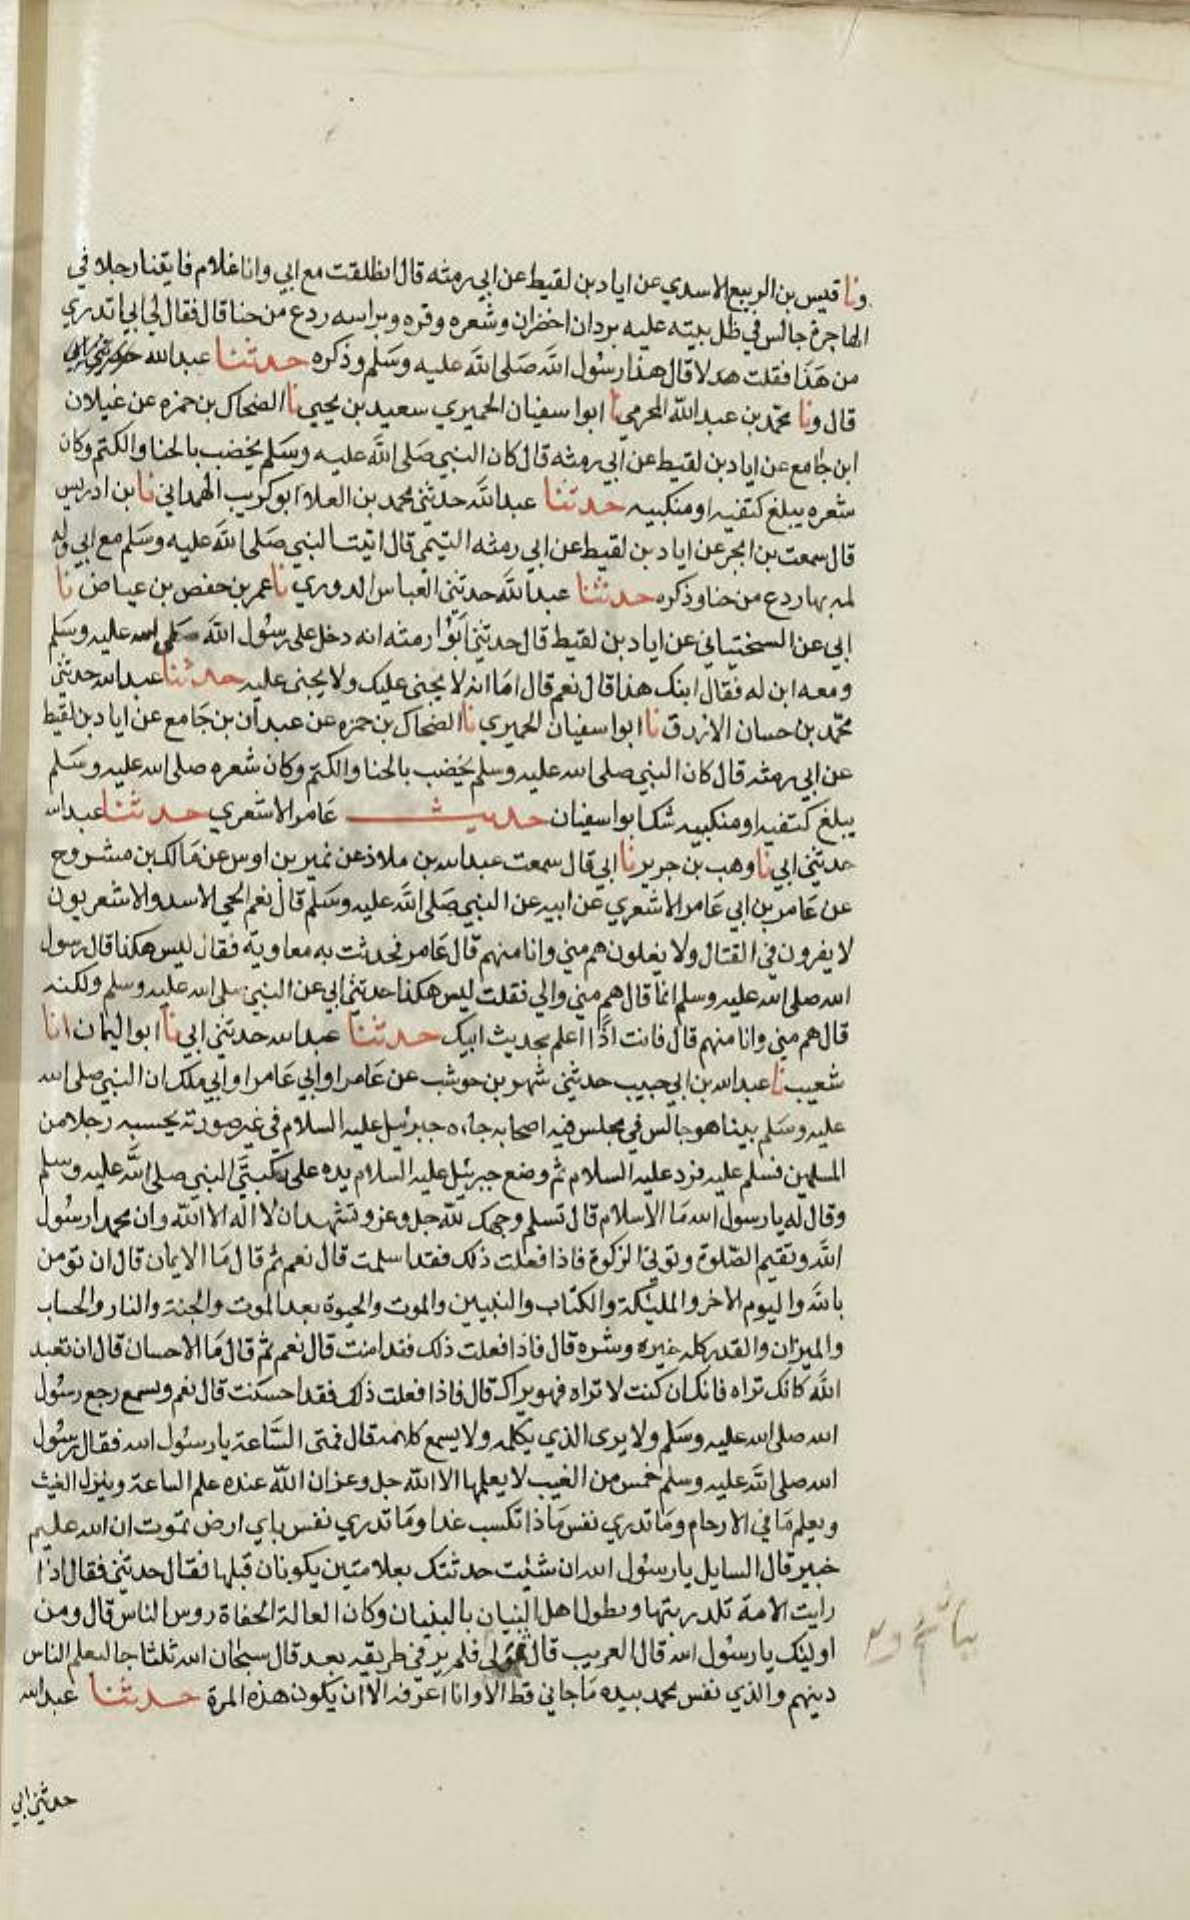 ونا قيس بن الربيع الاسدي عن اياد بن لقيط عن ابي رمثه قال انطلقت مع ابي وانا غلام فاتينا رجلا في
الهاجرة جالس في ظل بيته عليه بردان اخضران وشعره وفره وبراسه ردع من حنا قال فقال لي ابي اتدري
من هذا فقلت لا قال هذا رسول الله صلى الله عليه وسلم وذكره حدثنا عبدالله
قال ونا محمد بن عبدالله المخرمي نا ابوا سفيان الحميري سعيد بن يحيي نا الضحاك بن حمزه عن غيلان
ابن جامع عن اياد بن لقيط عن ابي رمثه قال كان النبي صلى الله عليه وسلم يخضب بالحنا والكتم وكان
شعره يبلغ كتفيه او منكبيه حدثنا عبدالله حدثني محمد بن العلا ابو كريب الهمداني نا بن ادريس
قال سمعت بن ابجر عن اياد بن لقيط عن ابي رمثه التيمي قال اتيت النبي صلى الله عليه وسلم مع ابي وله
لمه بها ردع من حنا وذكره حدثنا عبدالله حدثني العباس الدوري نا عمر بن حفص بن عياض نا
ابي عن السختياني عن اياد بن لقيط قال حدثني ابوا رمثه انه دخل على رسول الله صلى الله عليه وسلم
ومعه ابن له فقال ابنك هذا قال نعم قال اما انه لا يجني عليك ولا يجني عليه حدثنا عبدالله حدثني
محمد بن حسان الازرق نا ابوا سفيان الحميري نا الضحاك بن حمزه عن عبدان بن جامع عن اياد بن لقيط
عن ابي رمثه قال كان النبي صلى الله عليه وسلم يخضب بالحنا والكتم وكان شعره صلى الله عليه وسلم
يبلغ كتفيه او منكبيه شك ابوا سفيان حديث عامر الاشعري حدثنا عبدالله
حدثني ابي نا وهب بن جرير نا ابي قال سمعت عبدالله بن ملاذ عن نمير بن اوس عن مالك بن مشروح
عن عامر بن ابي عامر الاشعري عن ابيه عن النبي صلى الله عليه وسلم قال نعم الحي الاسد والاشعريون
لا يفرون في القتال ولا يغلون هم مني وانا منهم قال عامر فحدثت به معاوية فقال ليس هكذا قال رسول
الله صلى الله عليه وسلم انما قال هم مني والي فقلت ليس هكذا حدثني ابي عن النبي صلى الله عليه وسلم ولكنه
قال هم مني وانا منهم قال فانت اذا اعلم بحديث ابيك حدثنا عبدالله حدثني ابي نا ابوا اليمان انا
شعيب نا عبدالله بن ابي حبيب حدثني شهر بن حوشب عن عامر او ابي عامر او ابي ملك ان النبي صلى الله
عليه وسلم بينا هو جالس في مجلس فيه اصحابه جاءه جبرئيل عليه السلام في غير صورته يحسبه رجلا من
المسلمين فسلم عليه فرد عليه السلام ثم وضع جبرئيل عليه السلام يده على ركبتي النبي صلى الله عليه وسلم
وقال له يارسول الله ما الاسلام قال تسلم وجهك لله جل وعز وتشهد ان لا اله الا الله وان محمدا رسول
الله وتقيم الصلوة وتوتي الزكوة فاذا فعلت ذلك فقد اسلمت قال نعم ثم قال ما الايمان قال ان تومن
بالله واليوم الاخر والمليكة والكتاب والنبيين والموت والحيوة بعد الموت والجنة والنار والحساب
والميزان والقدر كله خيره وشره قال فاذا فعلت ذلك فقد امنت قال نعم ثم قال ما الاحسان قال ان تعبد
الله كانك تراه فانك ان كنت لا تراه فهو يراك قال فاذا فعلت ذلك فقد احسنت قال نعم ويسمع رجع رسول
الله صلى الله عليه وسلم ولا يرى الذي يكلمه ولا يسمع كلامه قال فمتى الساعة يارسول الله فقال رسول
الله صلى الله عليه وسلم خمس من الغيب لا يعلمها الا الله جل وعز ان الله عنده علم الساعة وينزل الغيث
ويعلم ما في الارحام وما تدري نفس ماذا تكسب غدا وما تدري نفس باي ارض تموت ان الله عليم
خبير قال السايل يارسول الله ان شئت حدثتك بعلامتين يكونان قبلها فقال حدثني فقال اذا
رايت الامة تلد ربتها ويطول اهل البنيان بالبنيان وكان العالة الحفاة روس الناس قال ومن
اوليك يارسول الله قال العريب قال ثم ولى فلم ير في طريقه بعد قال سبحان الله ثلثا جا ليعلم الناس
دينهم والذي نفس محمد بيده ما جاني قط الا وانا اعرفه الا ان يكون هذه المرة حدثنا عبدالله
حدثني ابي